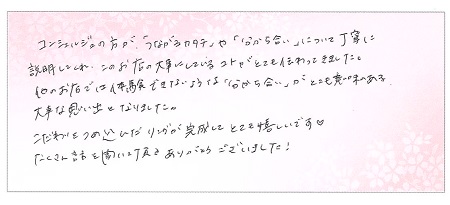 コンシェルジュの方が、「つながるカタチ」や「分かち合い」について丁寧に
説明してくれ、このお店の大事にしているコトがとても伝わってきました。
他のお店では体験できないような「分かち合い」がとても意味のある
大事な思い出となりました。
こだわりをつめ込んだリングが完成してとても嬉しいです♡
たくさん話を聞いて頂きありがとうございました！